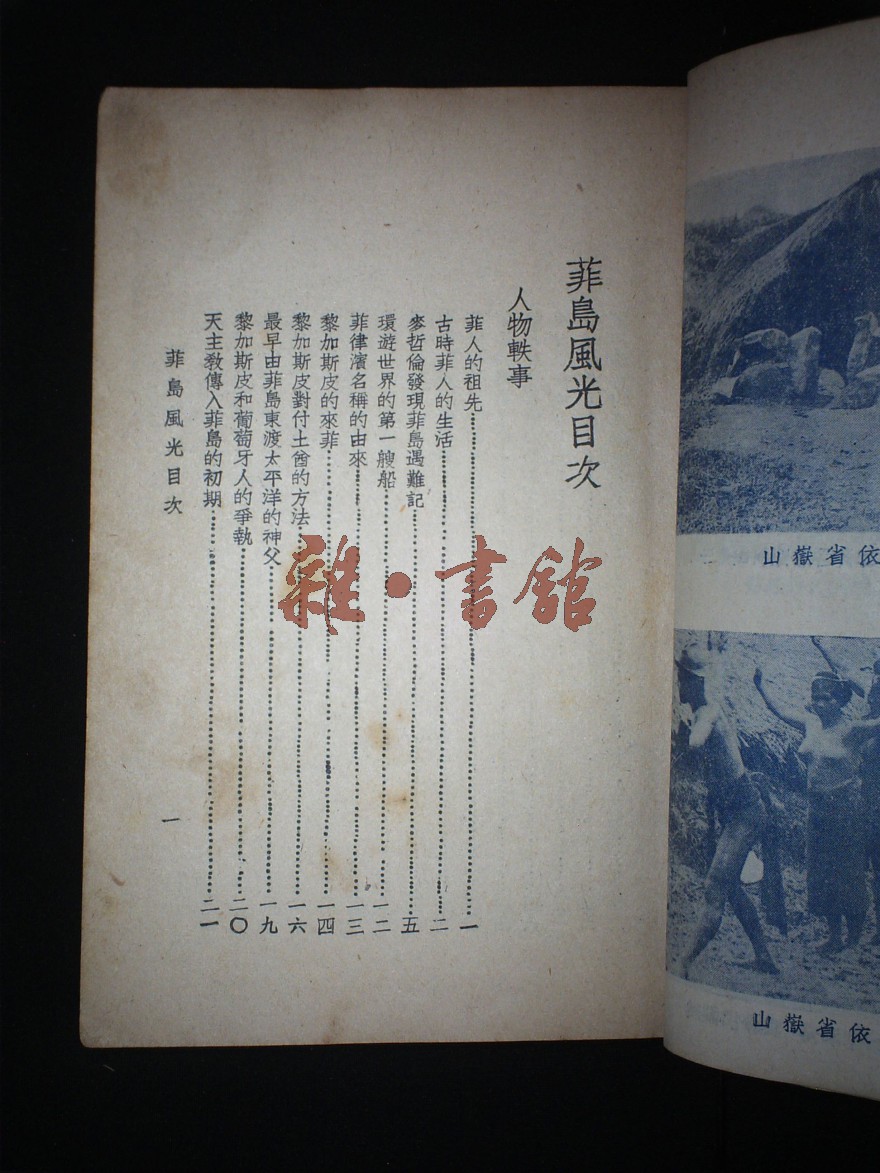 菲島風光目次
人物軼事
菲人的祖先…………一
古時菲人的生活…………二
麥哲倫發現菲島遇難記…………五
環遊世界的第一艘船…………一二
菲律濱名稱的由來…………一三
黎加斯皮的來菲…………一四
黎加斯皮對付土酋的方法…………一六
最早由菲島東渡太平洋的神父…………一九
黎加斯皮和葡萄牙人的爭執…………二〇
天主教傳入菲島的初期…………二一
菲島風光目次
一
山嶽省依
山嶽省依
雜·書館